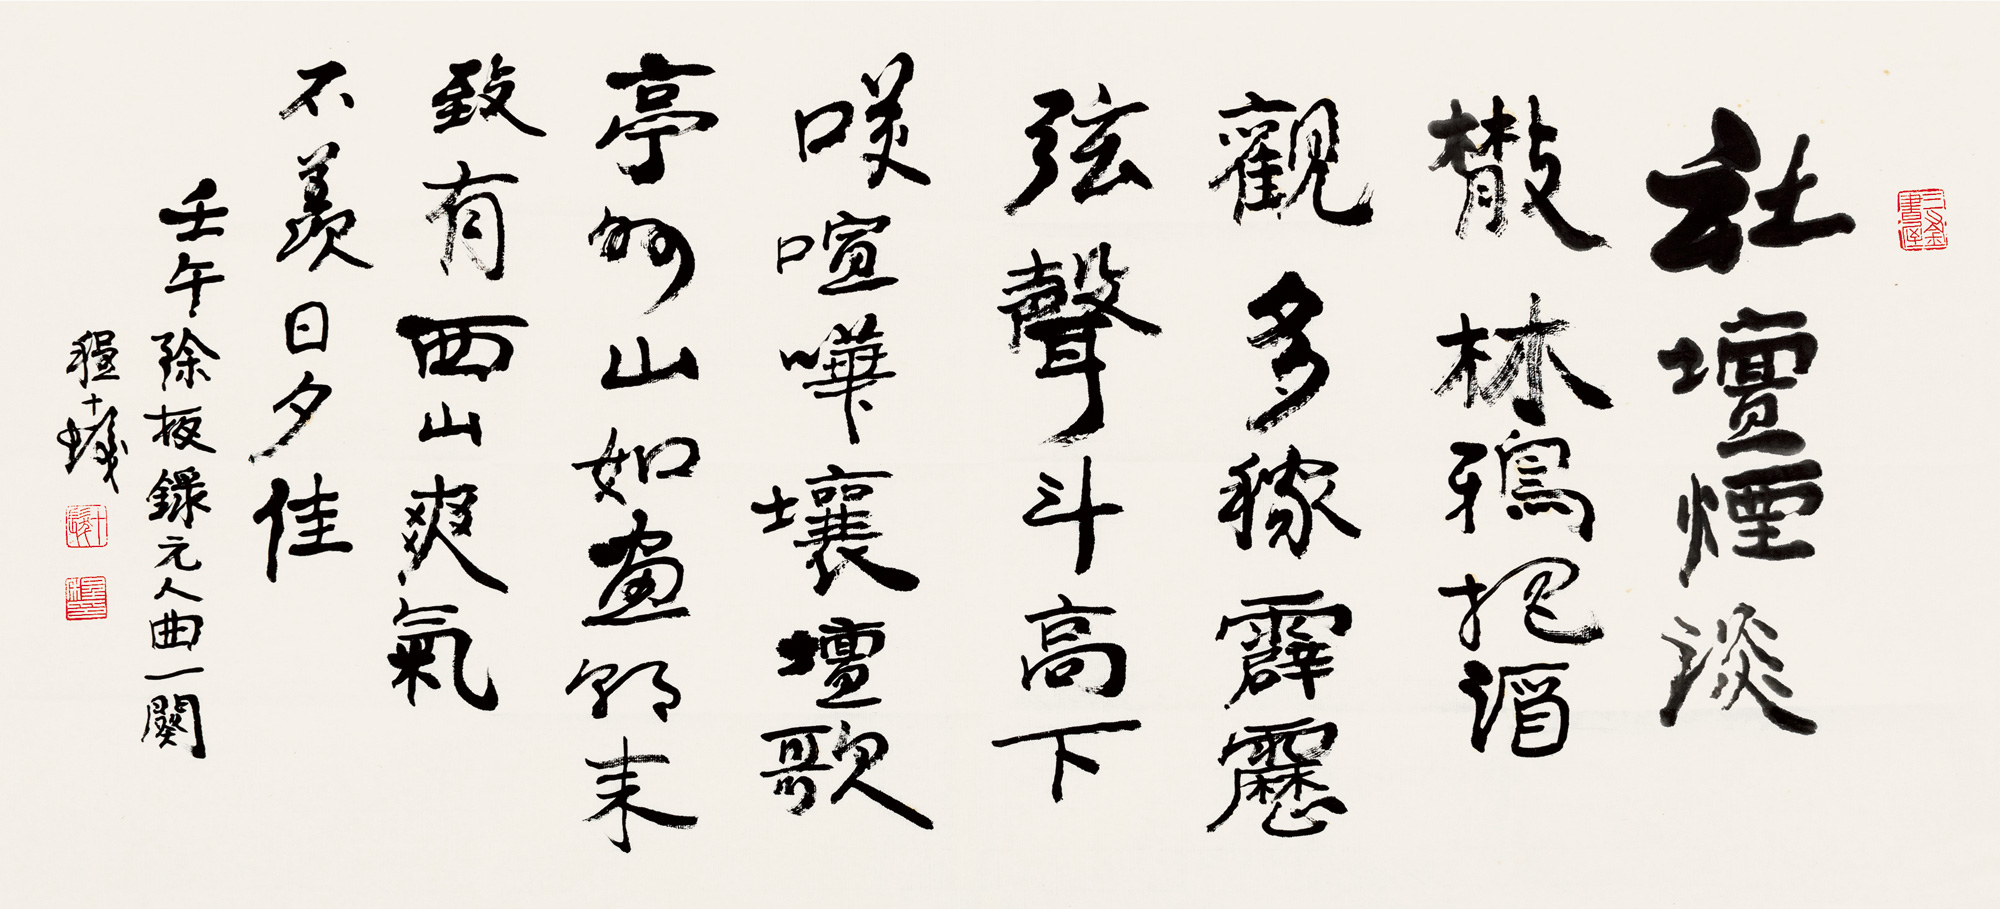 三釜書屋
社壇煙淡
散林鴉把酒
觀多稼霹靂
弦聲斗高下
咲喧嘩壤壇歌
亭外山如畫朝来
致有西山爽氣
不羨日夕佳
壬午除錄元人曲一闋
程十髮
十髮